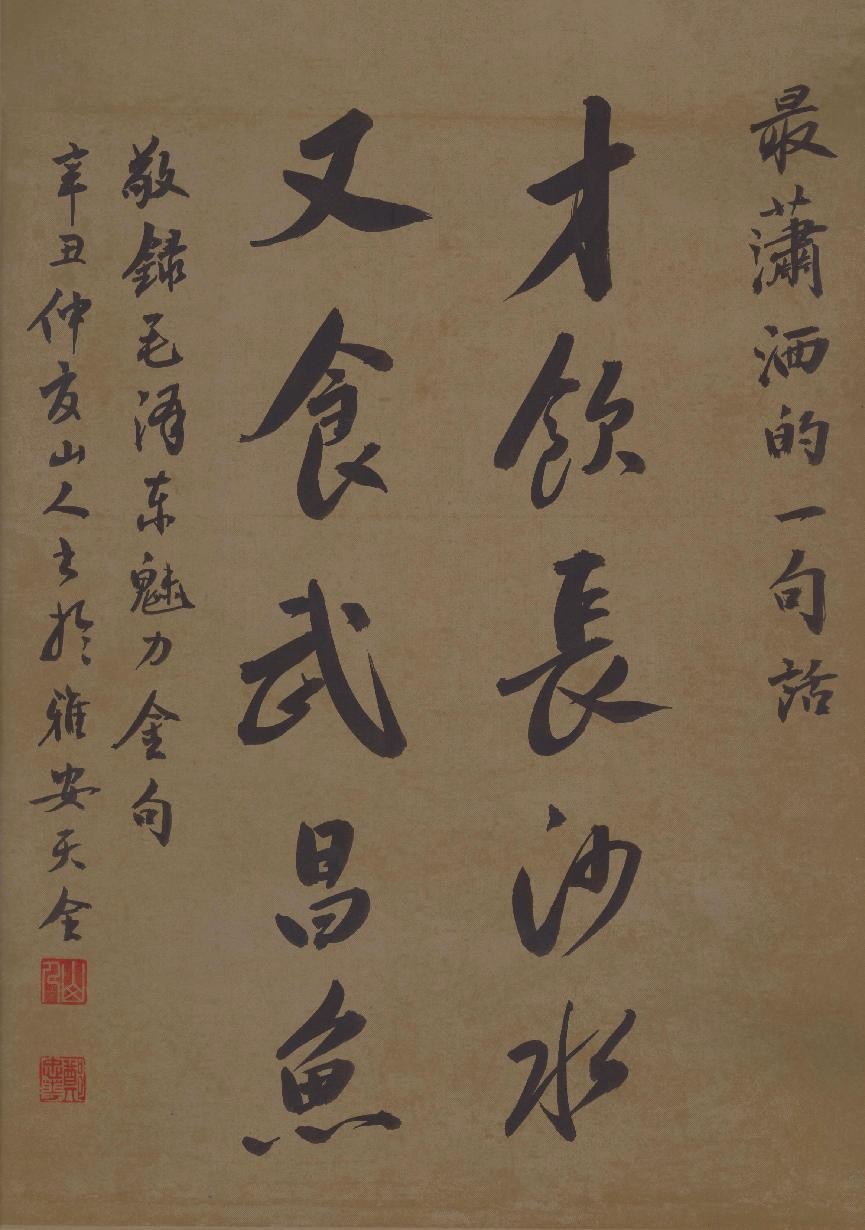 最瀟洒的一句話
才飲長沙水
又食武昌魚
敬錄毛澤东魅力金句
辛丑仲夏山人书於雅安天全